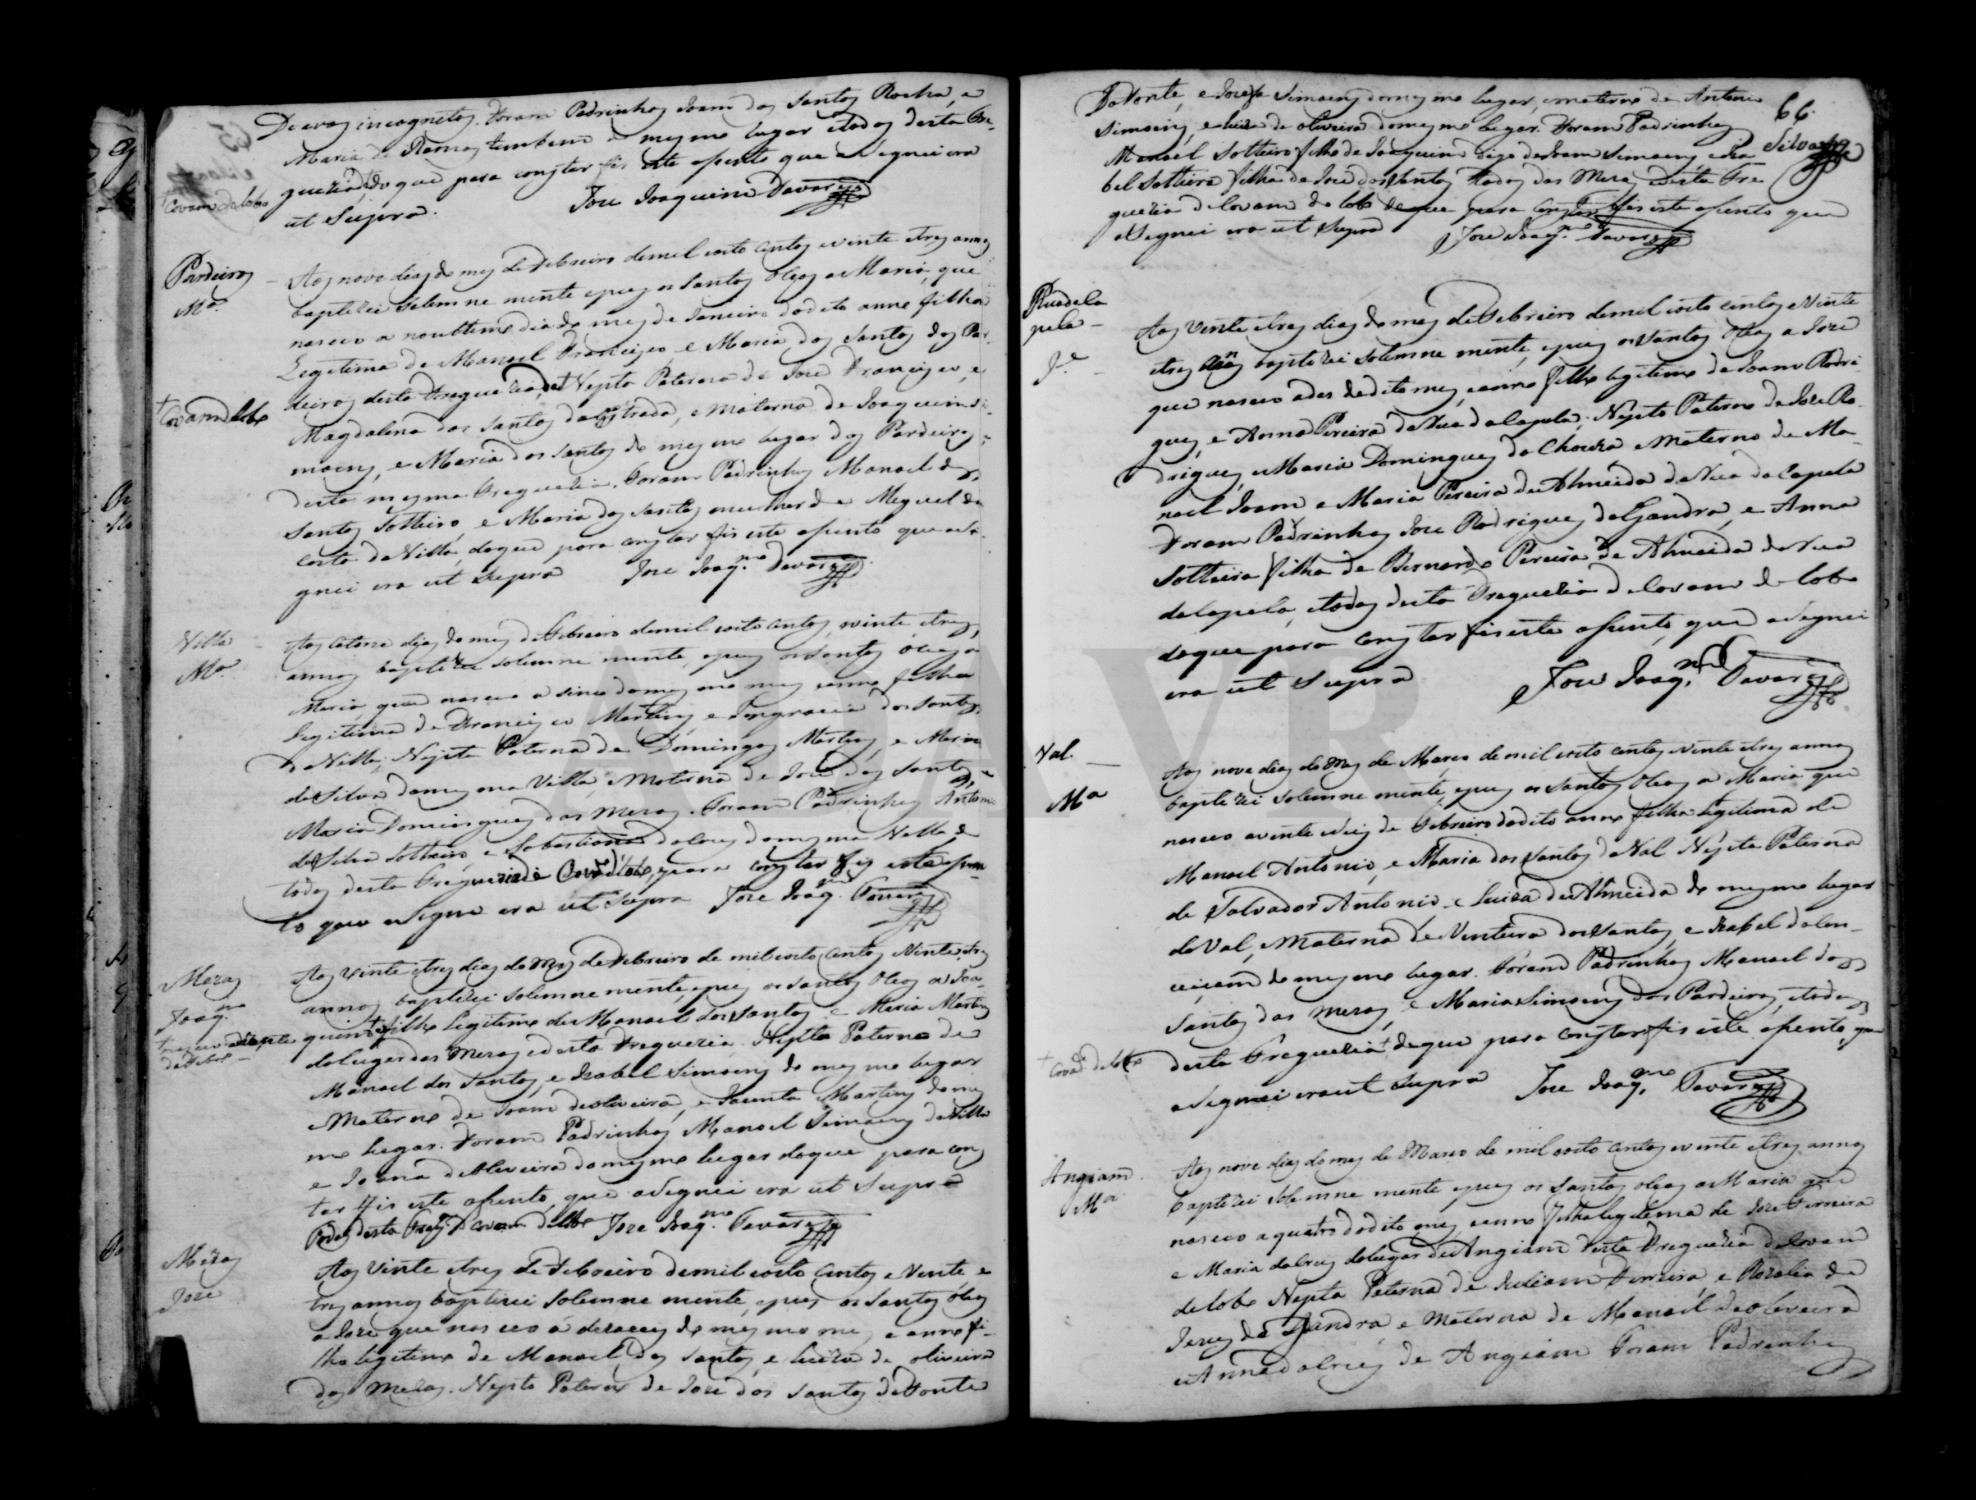 De avos incognetos. Foram Padrinhos Joam dos Santos Rocha, e
Maria de Ramos tambem do mesmo lugar etodos desta Fre-
guezia, do que para constar fis este asento que aSignei era
ut Supra. Joze Joaquim Tavares
+ Covam do lobo
Pardeiros
Ma.
Aos nove dias do mes de Febreiro demil oito centos evinte etres annos
baptizei Solemne mente epus os Santos Oleos a Maria, que
nasceo a noultimo dia do mes de Janeiro dodito anno filha
Legitima de Manoel Francisco e Maria dos Santos dos Par-
deiros desta Freguezia, Nepta Paterna de Joze Francisco, e
Magdalena dos Santos da Estrada, e Materna de Joaquim Si-
moens, e Maria dos Santos do mesmo lugar dos Pardeiros
+ Covam do lobo
desta mesma Freguezia. Foram Padrinhos Manoel dos
Santos Solteiro, e Maria dos Santos mulher de Miguel da
Costa da Villa, doque para constar fis este asento que aSi-
gnei era ut Supra Joze Joaqm. Tavares
Villa
Ma.
Aos catorze dias do mes de Febreiro demil oito centos, evinte etres
annos baptizei Solemne mente, epus os Santos Oleos a
Maria, que nasceo a sinco do mesmo mes eanno filha
legitima de Francisco Martins, e Engracia dos Santos
da Villa, Nepta Paterna de Domingos Martins, e Maria
da Silva da mesma Villa, e Materna de Joze dos Santos, e
Maria Domingues das Mezas. Foram Padrinhos Antonio
da Silva Solteiro, e Sabastiana da Crus da mesma Villa, e
todos desta Freguezia de Covam do lobo, epara constar fis este asen-
to que aSigno era ut Supra Joze Joaqm. Tavares
Mezas
Joaqm.
Aos vinte etres dias do Mes de Febreiro de mil oito centos Vinte etres
annos baptizei Solemne mente, epus os Santos Oleos a Joa-
quim filho Legitimo de Manoel dos Santos, e Maria Martins
dolugar das Mezas edesta Freguezia, Nepto Paterno de
Manoel dos Santos, e Izabel Simoens do mesmo lugar
e Materno de Joam deoliveira, e Jacinta Martins domes-
mo lugar. Foram Padrinhos Manoel Simoens da Villa
e Joana deOliveira domesmo lugar doque para cons-
tar fis este asento, que aSignei era ut Supra
todos desta Fregª. d Covam do lobo Joze Joaqm. Tavares
Mezas
Joze
Aos Vinte etres de Febreiro demil oito centos e Vinte e
tres annos baptizei Solemne mente, epus os Santos Oleos
a Joze que nasceo a dezaceis do mesmo mes, e anno fi-
lho legitimo de Manoel dos Santos, e Luiza de oliveira
das Mezas. Nepto Paterno de Joze dos Santos daFonte
66.
Silva
DaFonte, e Josefa Simoens domesmo lugar, ematerno de Antonio
Simoens, e Luiza de oliveira domesmo lugar. Foram Padrinhos
Manoel Solteiro filho de Joaquim digo de Joam Simoens, e Iza-
bel Solteira filha de Joze dos Santos todos das Mezas edesta Fre-
guezia d Covam do lobo doque para constar fis este asento que
aSignei era ut Supra Joze Joaqm. Tavares
Rua da Ca
pela
Je.
Aos Vinte etres dias do mes de Febreiro demil oito centos e Vinte
etres annos baptizei Solemne mente, epus os Santos Oleos a Joze
que nasceo ados dodito mes, eanno filho legitimo de Joam Rodri-
gues, e Anna Pereira da Rua da Capela, Nepto Paterno de Joze Ro-
drigues, e Maria Domingues da Chouza e Materno de Ma-
noel Joam e Maria Pereira de Almeida da Rua da Capela
Foram Padrinhos Joze Rodrigues da Gandra, e Anna
Solteira filha de Bernardo Pereira de Almeida da Rua
da Capela, etodos desta Freguezia d Covam do lobo
doque para constar fis este asento, que aSignei
era ut Supra Joze Joaqm. Tavares
Val.
Ma
Aos nove dias do Mes de Março demil oito centos evinte etres annos
baptizei Solemne mente, epus os Santos Oleos a Maria que
nasceo avinte de Febreiro dodito anno filha legitima de
Manoel Antonio, e Maria dos Santos do Val Nepta Paterna
de Salvador Antonio, e Luiza de Almeida do mesmo lugar
do Val, e Materna de Ventura dos Santos, e Izabel da Con-
ceiçam do mesmo lugar. Foram Padrinhos Manoel dos
Santos das Mezas, e Maria Simoens dos Pardeiros, etodos
+ Covam do lobo
desta Freguezia+ doque para constar fis este asento, que
aSignei era ut Supra Joze Joaqm. Tavares
Angiam
Ma
Aos nove dias do mes de Marco de mil oito centos evinte etres annos
baptizei Solemne mente epus os Santos oleos a Maria que
nasceo a quatro dodito mes, eanno filha legitima de Joze Ferreira
e Maria da Crus dolugar de Angiam desta Freguezia d Covam
do lobo Nepta Paterna de Juliam Ferreira, e Rozalia de
Jezus da Gandra, e Materna de Manoel deoliveira
e Anna da Crus de Angiam Foram Padrinhos
ADAVR